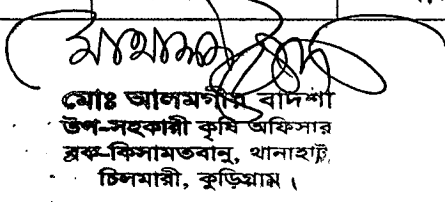 মোঃ আলমগীর বাদশা
উপ-সহকারী কৃষি অফিসার
ব্লক-কিসামতবানু, থানাহাট,
চিলমারী, কুড়িগ্রাম।